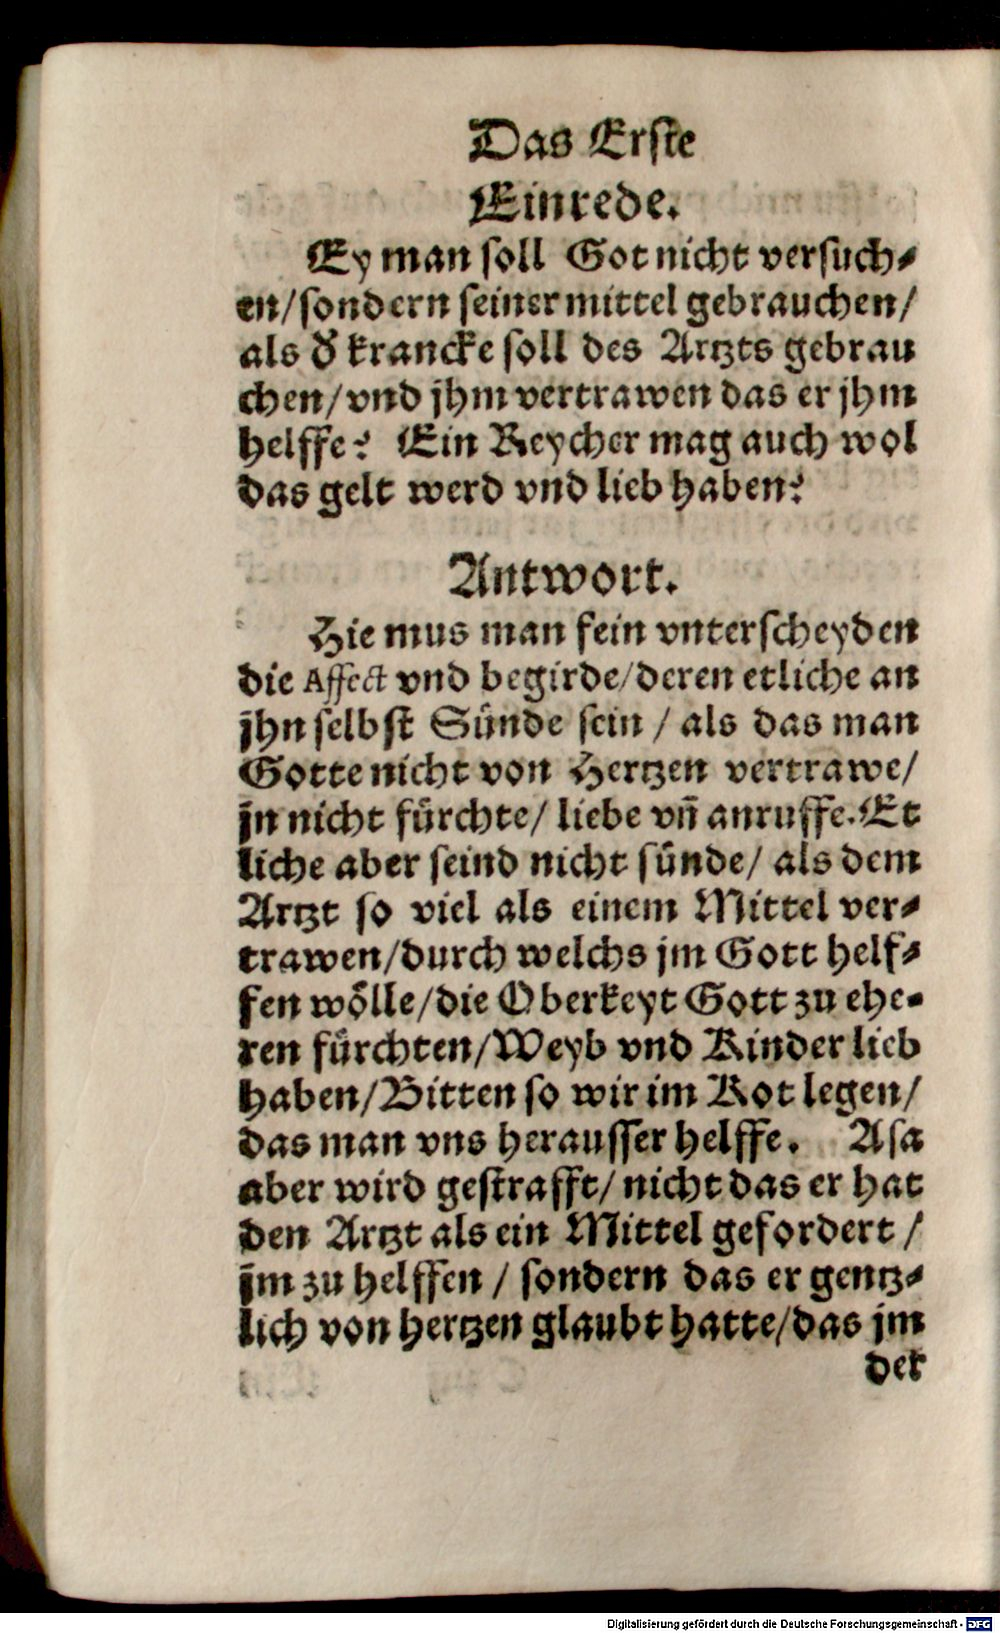 Das Erste
Einrede.
Ey man soll Got nicht versuch⸗
en/sondern seiner mittel gebrauchen/
als d̕ krancke soll des Artzts gebrau
chen/vnd jhm vertrawen das er jhm
helffe? Ein Reycher mag auch wol
das gelt werd vnd lieb haben?
Antwort.
Hie mus man fein vnterscheyden
die Affect vnd begirde/deren etliche an
jhn selbst Sünde sein / als das man
Gotte nicht von Hertzen vertrawe/
jn nicht fürchte/ liebe vn̄ anruffe. Et
liche aber seind nicht sünde/ als dem
Artzt so viel als einem Mittel ver⸗
trawen/durch welchs jm Gott helf⸗
fen wölle/die Oberkeyt Gott zu ehe⸗
ren fürchten/Weyb vnd Kinder lieb
haben/Bitten so wir im Kot legen/
das man vns herausser helffe. Asa
aber wird gestrafft/ nicht das er hat
den Artzt als ein Mittel gefordert /
jm zu helffen / sondern das er gentz⸗
lich von hertzen glaubt hatte/das jm
der
Digitalisierung gefördert durch die Deutsche Forschungsgemeinschaft - DFG